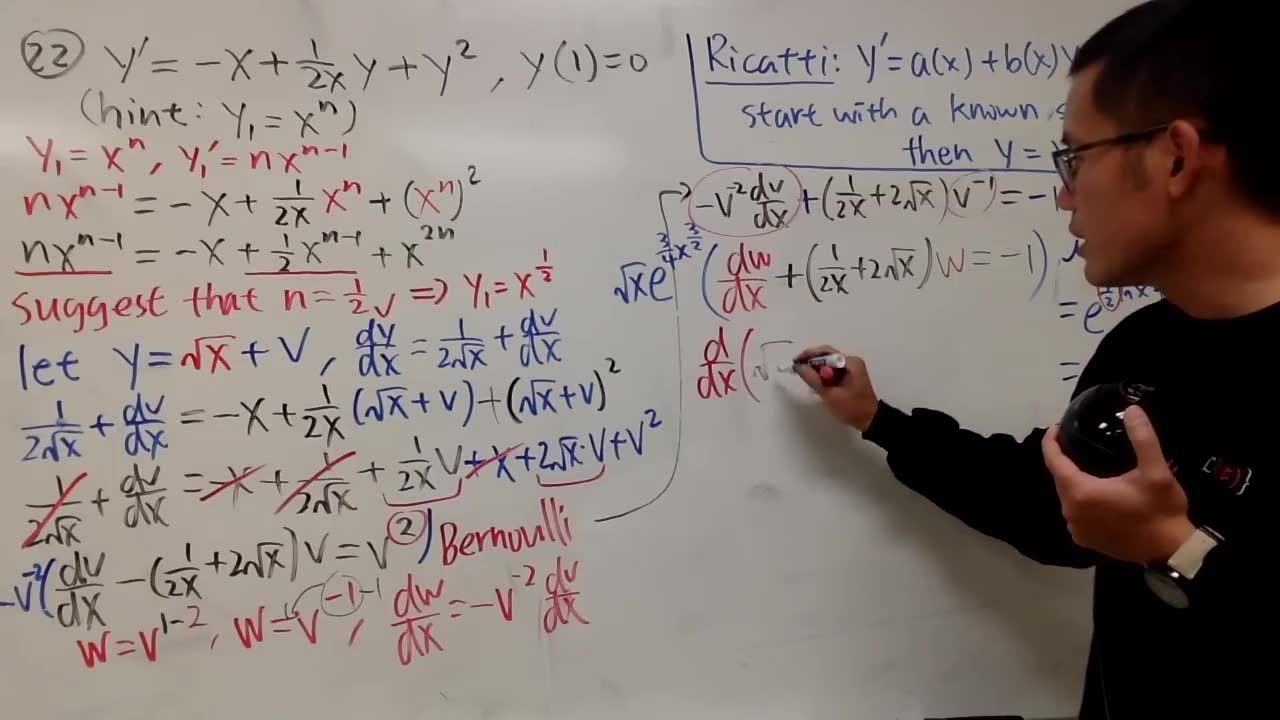 22 y' = -x + 1/(2x) y + y², y(1)=0
(hint: y₁ = xⁿ)
y₁ = xⁿ, y₁' = nxⁿ⁻¹
nxⁿ⁻¹ = -x + 1/(2x) xⁿ + (xⁿ)²
nxⁿ⁻¹ = -x + 1/2 xⁿ⁻¹ + x²ⁿ
suggest that n = 1/2 √ ⇒ y₁ = x^(1/2)
let y = √x + v, dy/dx = 1/(2√x) + dv/dx
1/(2√x) + dv/dx = -x + 1/(2x) (√x + v) + (√x + v)²
1/(2√x) + dv/dx = -x + 1/(2√x) + 1/(2x) v + x + 2√x·v + v²
-v⁻²(dv/dx - (1/(2x) + 2√x)v = v²) Bernoulli
w = v¹⁻², w = v⁻¹, dw/dx = -v⁻² dv/dx
Ricatti: y' = a(x) + b(x)y
start with a known
then y =
-v⁻² dv/dx + (1/(2x) + 2√x) v⁻¹ = -1
√x e^(3/4 x^(3/2)) (dw/dx + (1/(2x) + 2√x) w = -1)
= e
=
d/dx (√